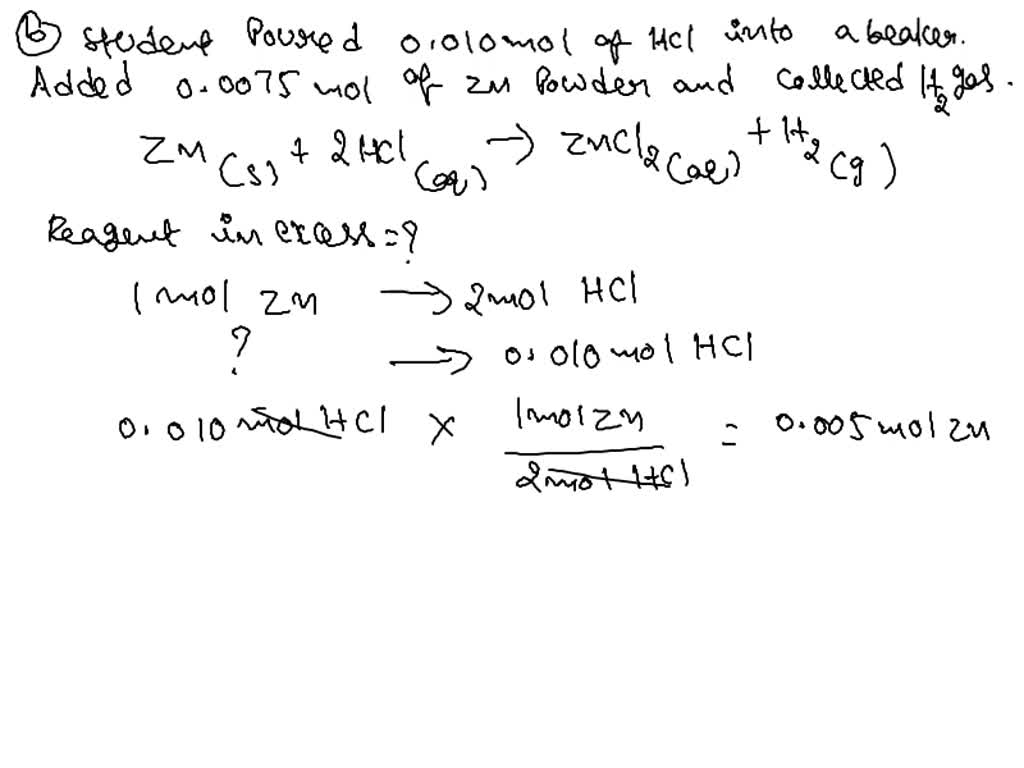 (b) Student Poured 0.010 mol of HCl into a beaker.
Added 0.0075 mol of Zn Powder and collected H2 gas.
Zn(s) + 2HCl(aq) → ZnCl2(aq) + H2(g)
Reagent in excess = ?
1 mol Zn → 2 mol HCl
? → 0.010 mol HCl
0.010 mol HCl × 1 mol Zn / 2 mol HCl = 0.005 mol Zn